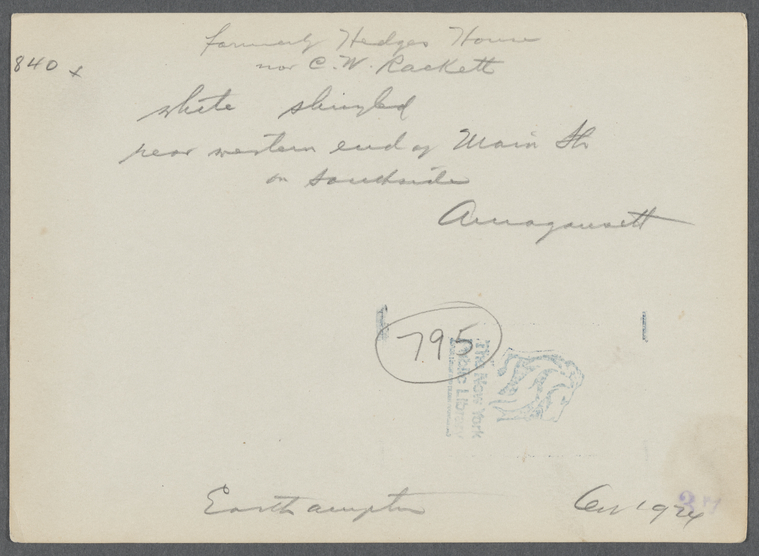 formerly Hedges House
now C. W. Rackett
840 x
white shingled
near western end of Main St
on south side
Amagansett
795
The New York
Public Library
Easthampton
1924
37